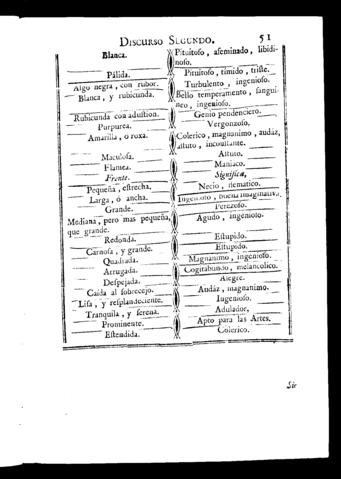 DISCURSO SEGUNDO. 51
Blanca. Pituitoso, afeminado, libidi-
noso.
Pálida. Pituitoso, timido, triste.
Algo negra, con rubor. Turbulento, ingenioso.
Blanca, y rubicunda. Bello temperamento, sangui-
neo, ingenioso.
Rubicunda con adustion. Genio pendenciero.
Purpurea. Vergonzoso.
Amarilla, ó roxa. Colerico, magnanimo, audaz,
astuto, inconstante.
Maculosa. Astuto.
Flamea. Maniaco.
Frente. Significa,
Pequeña, estrecha. Necio, flematico.
Larga, ó ancha. Ingenioso, buena imaginativa.
Grande. Perezoso.
Mediana, pero mas pequeña, Agudo, ingenioso.
que grande.
Redonda. Estupido.
Carnosa, y grande. Estupido.
Quadrada. Magnanimo, ingenioso.
Arrugada. Cogitabundo, melancolico.
Despejada. Alegre.
Caída al sobrecejo. Audaz, magnanimo.
Lisa, y resplandeciente. Ingenioso.
Tranquila, y serena. Adulador,
Prominente. Apto para las Artes.
Estendida. Colerico.
Sir